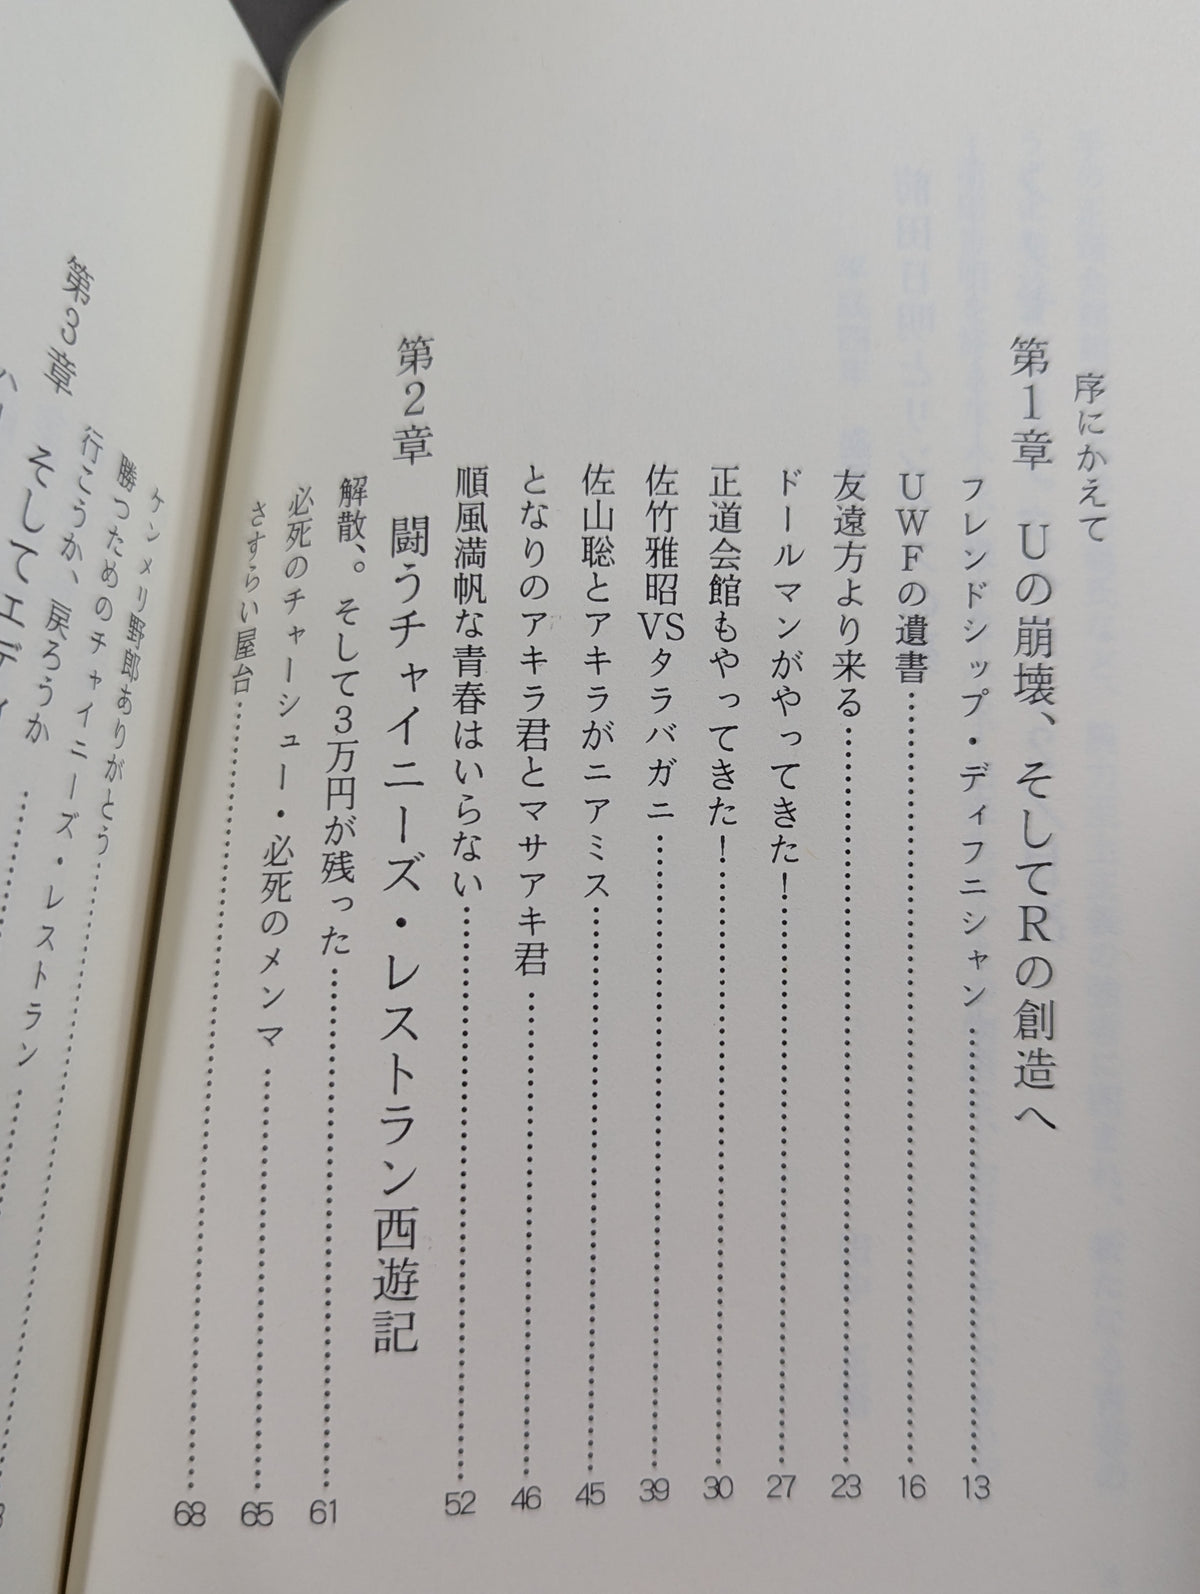 序にかえて
第1章 Uの崩壊、そしてRの創造へ
フレンドシップ・ディフニシャン……………………13
UWFの遺書……………………16
友遠方より来る……………………23
ドールマンがやってきた!……………………27
正道会館もやってきた!……………………30
佐竹雅昭VSタラバガニ……………………39
佐山聡とアキラがニアミス……………………45
となりのアキラ君とマサアキ君……………………46
順風満帆な青春はいらない……………………52
第2章 闘うチャイニーズ・レストラン西遊記
解散、。そして3万円が残った……………………61
必死のチャーシュー・必死のメンマ……………………65
さすらい屋台……………………68
ケンメリ野郎ありがとう……………………
勝つためのチャイニーズ・レストラン……………………
行こうか、戻ろうか……………………
第3章 そしてエディ